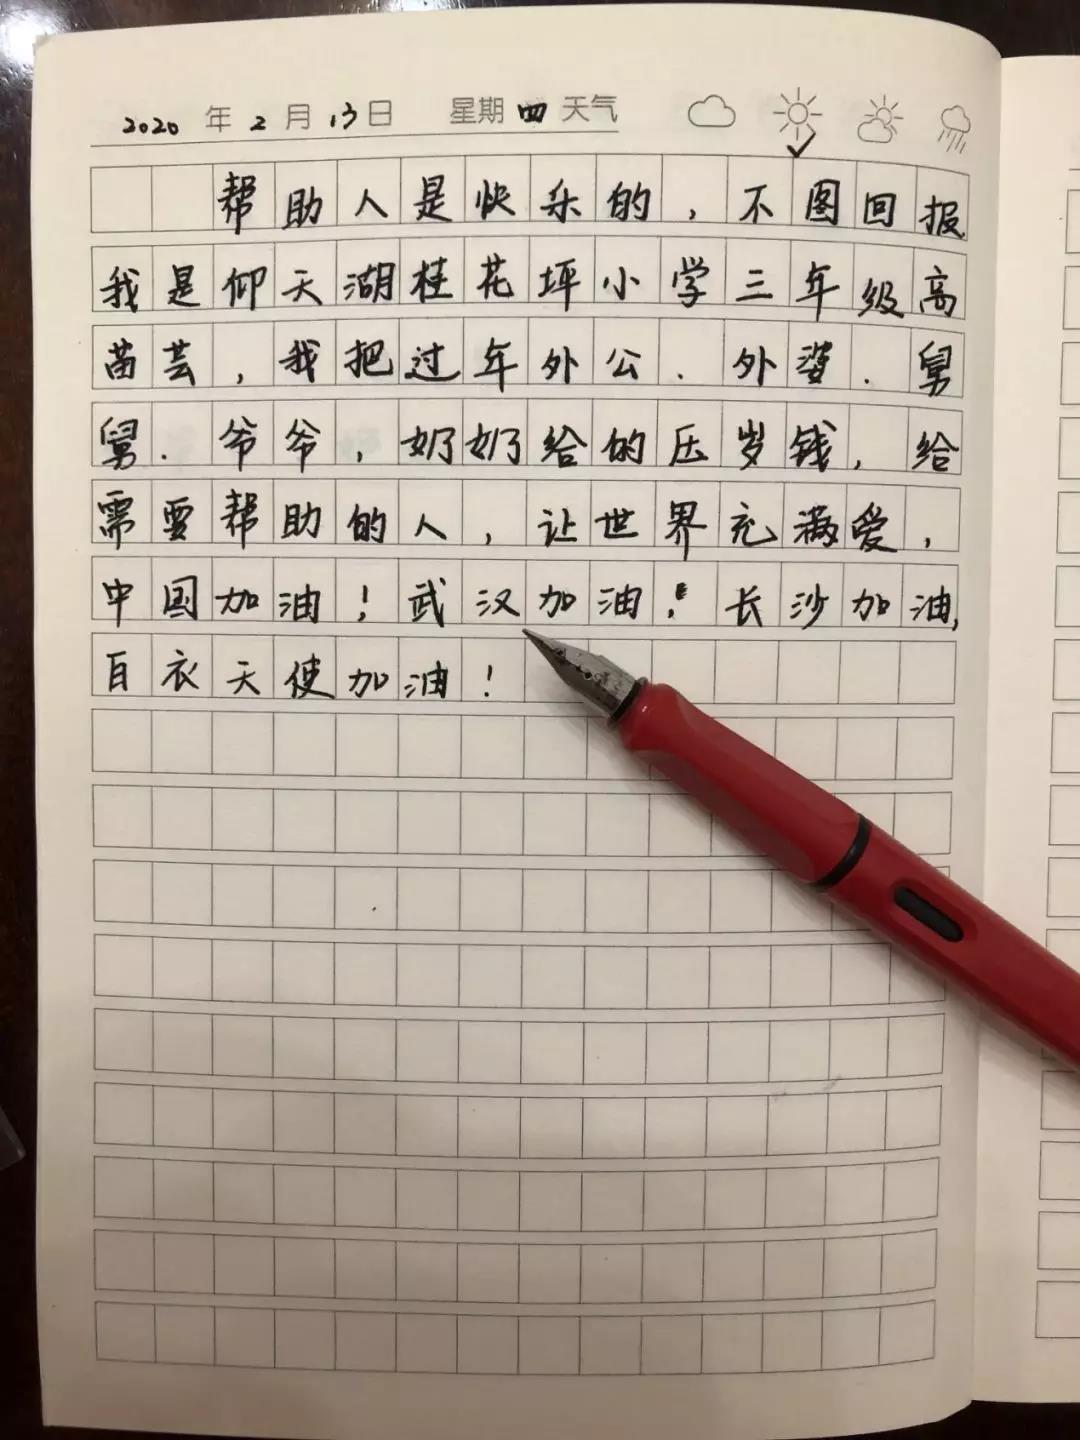 2020 年 2 月 13 日 星期 四 天气
帮助人是快乐的，不图回报.
我是仰天湖桂花坪小学三年级高
苗芸，我把过年外公.外婆.舅
舅.爷爷，奶奶给的压岁钱，给
需要帮助的人，让世界充满爱，
中国加油！武汉加油！长沙加油,
白衣天使加油！